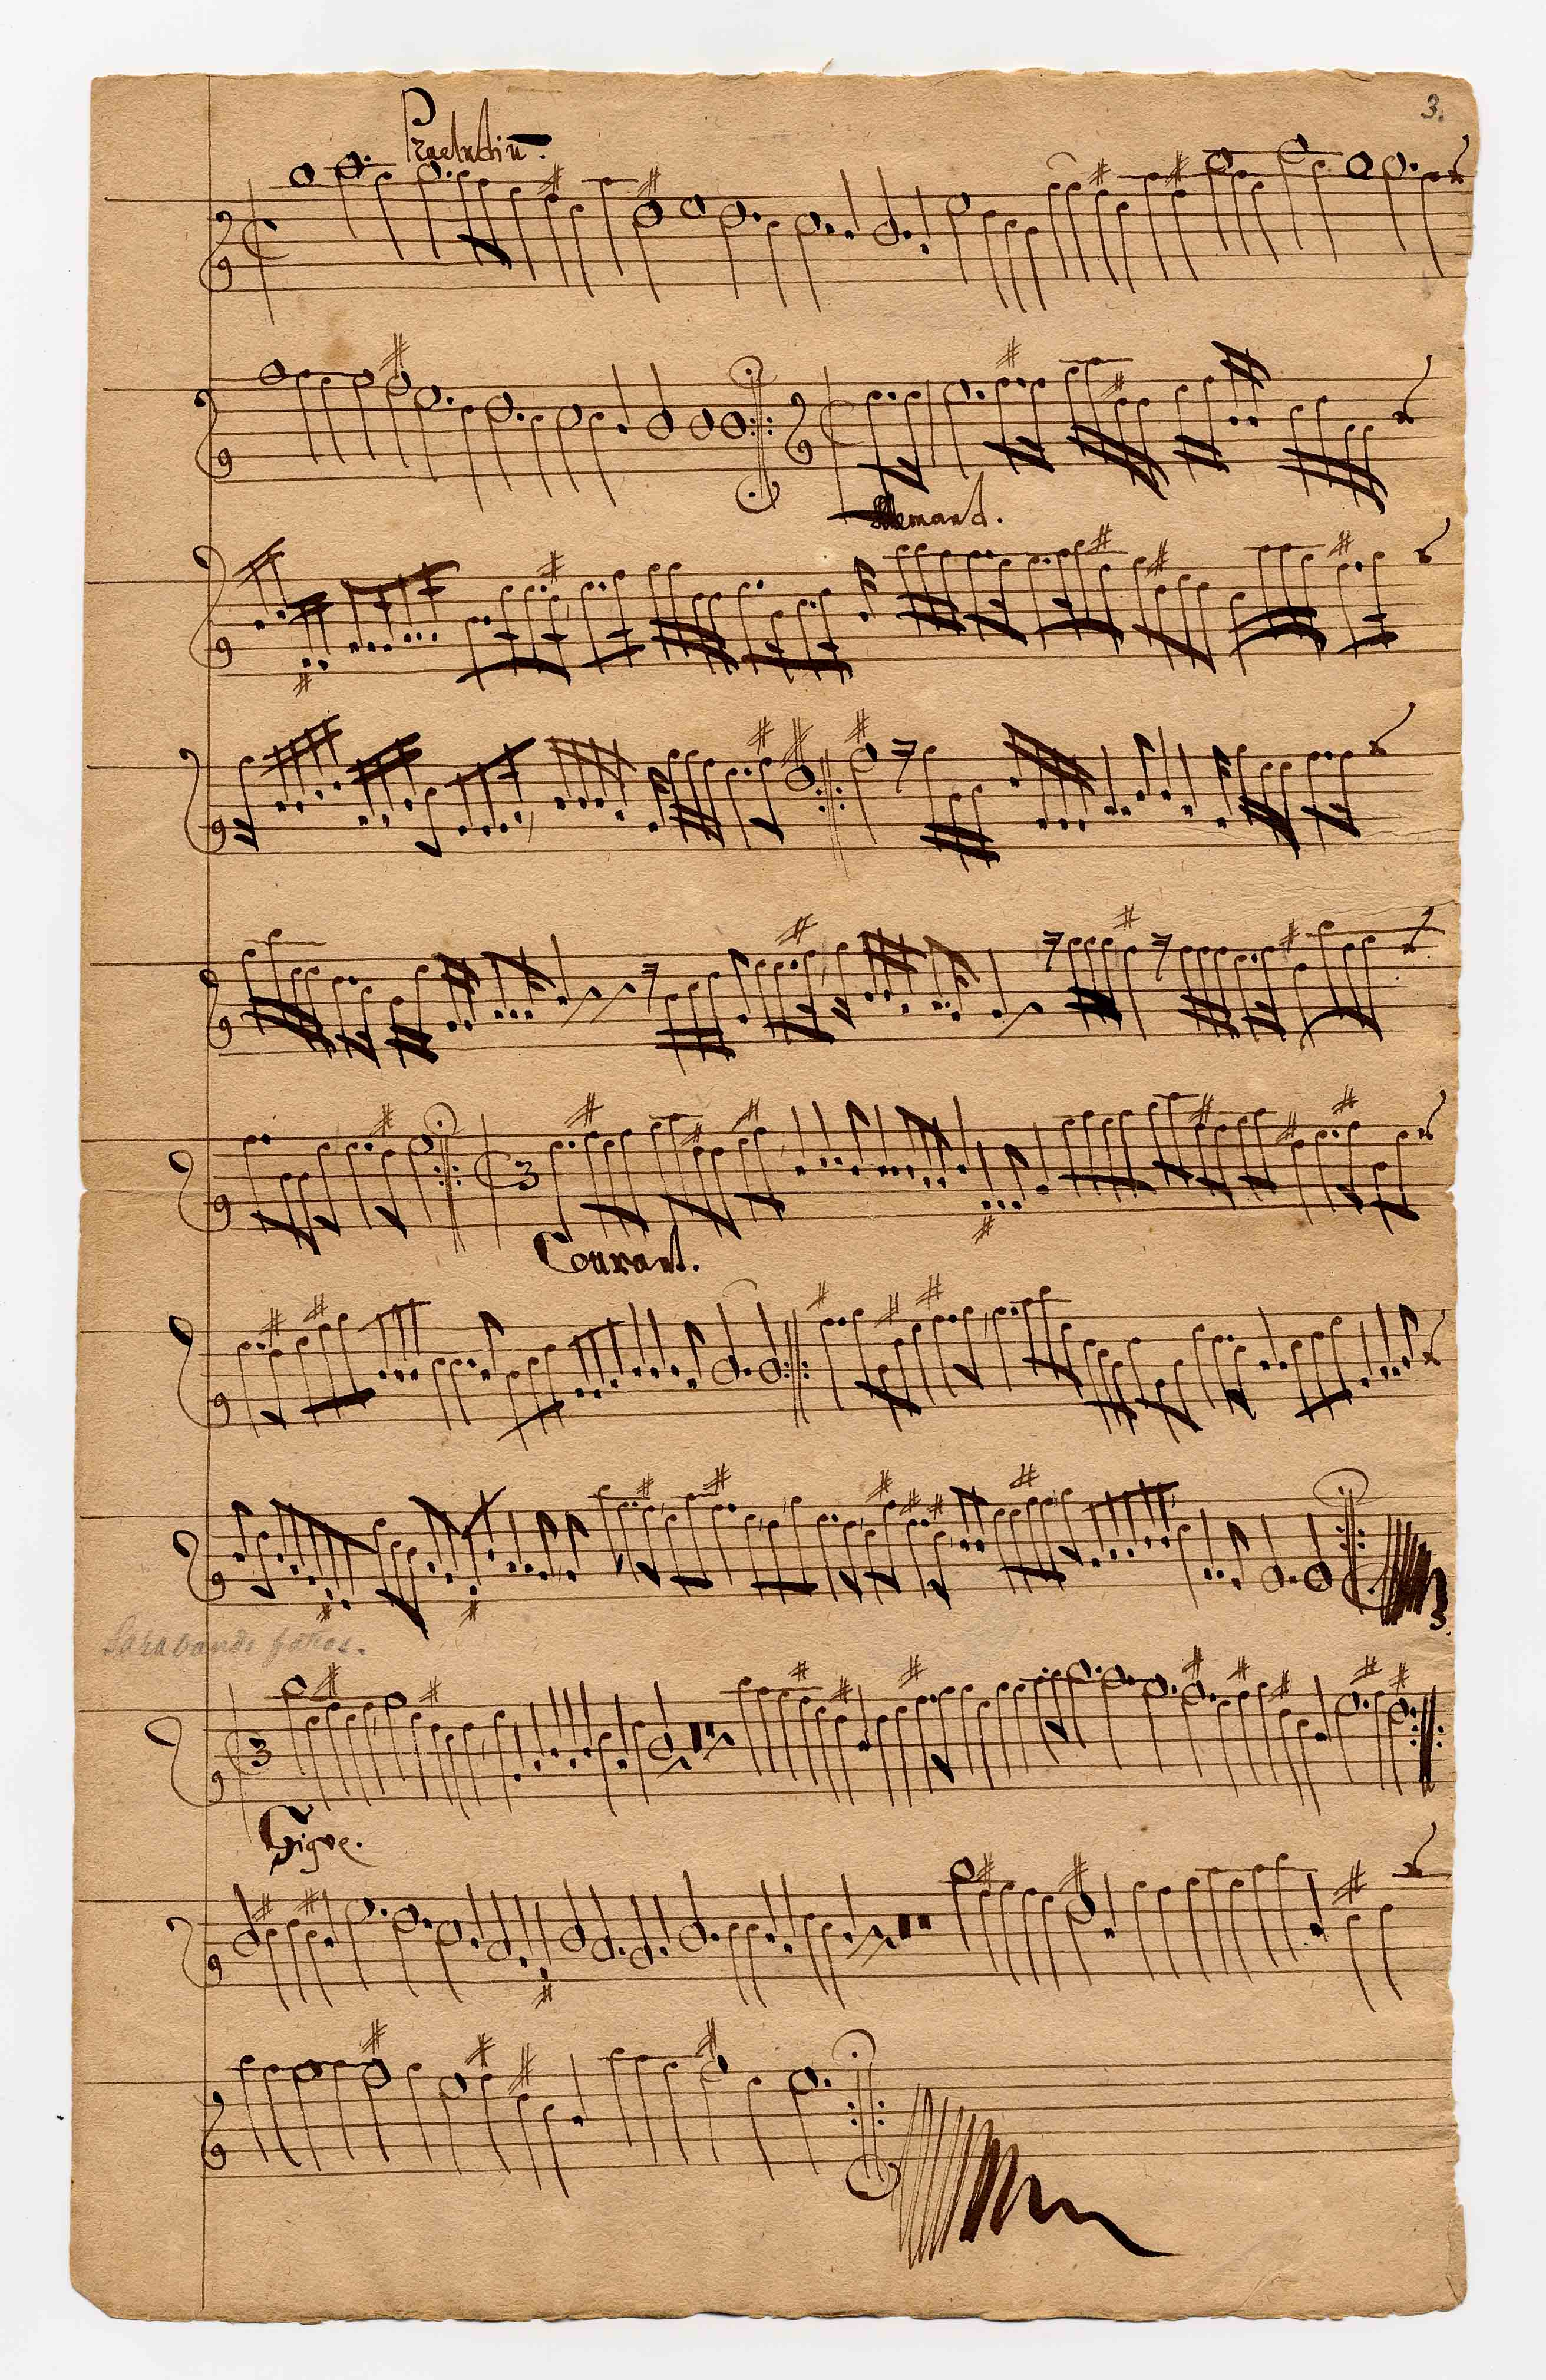 3.
Praeludiū.
Allemand.
Courant.
Sarabande fehlt.
Gigue.